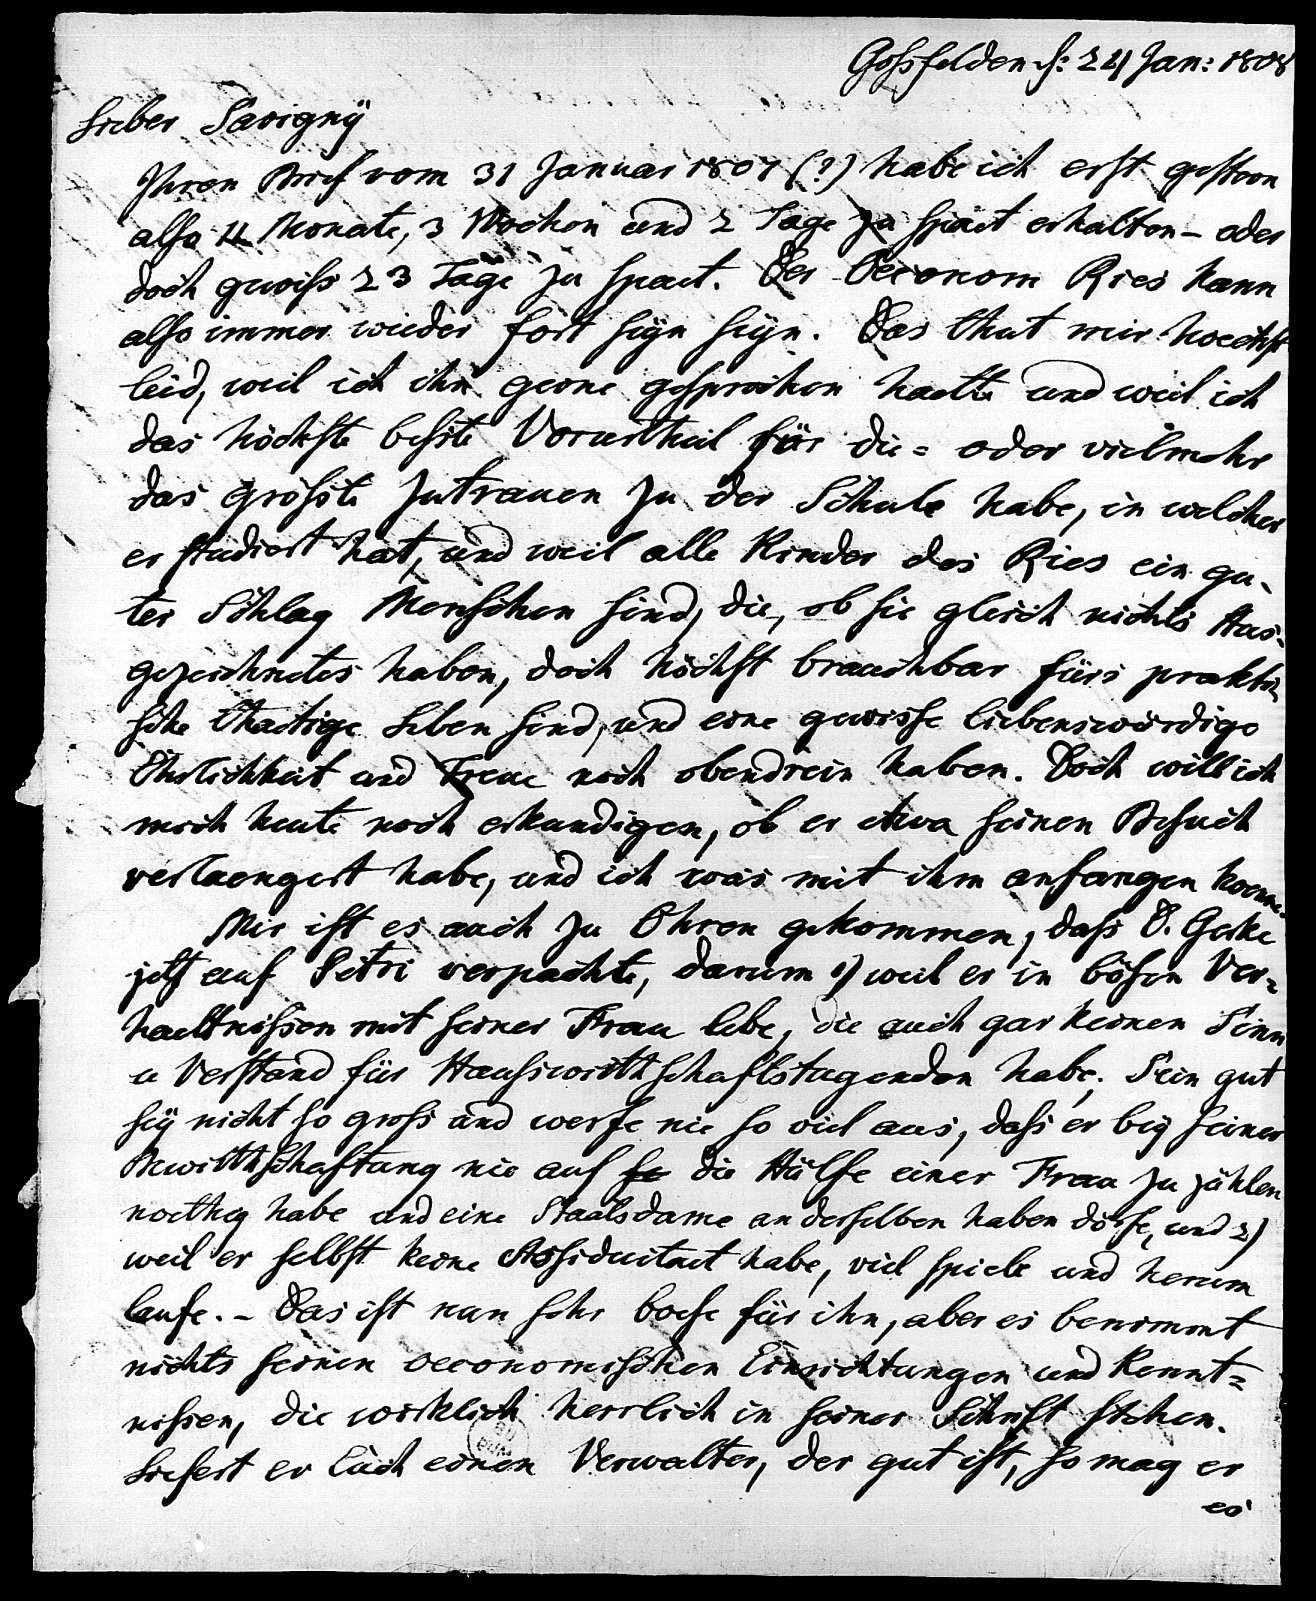 Gossfelden d: 24 Jan: 1808
Lieber Savigny
Ihren Brief vom 31 Januar 1807 (?) habe ich erst gestern
also 11 Monate, 3 Wochen und 2 Tage zu spaet erhalten – oder
doch gewiss 23 Tage zu spaet. Der Oeconom Ries kann
also immer wieder fort seyn seyn. Das thut mir hoechst
leid, weil ich ihn gerne gesprochen haette und weil ich
das höchste beste Vorurtheil für die = oder vielmehr
das grösste Zutrauen zu der Schule habe, in welcher
er studiert hat, und weil alle Kinder des Ries ein gu-
ter Schlag Menschen sind, die, ob sie gleich nichts Aus-
gezeichnetes haben, doch höchst brauchbar fürs prakti-
sche thaetige Leben sind, und eine gewisse liebenswürdige
Ehrlichkeit und Treue noch obendrein haben. Doch will ich
mich heute noch erkundigen, ob er etwa seinen Besuch
verlaengert habe, und ich was mit ihm anfangen koenne.
Mir ist es auch zu Ohren gekommen, dass O. Gerke
jetzt auf Petri verpachte, darum 1) weil er in bösen Ver-
haeltnissen mit seiner Frau lebe, die auch gar keinen Sinn
u Verstand für Hausswirthschaftstugenden habe. Sein gut
sey nicht so gross und werfe nie so viel aus, dass er bey seiner
Bewirthschaftung nie auf se die Hülfe einer Frau zu zählen
noethig habe und eine Staatsdame an derselben haben dörfe, und 2)
weil er selbst keine Assiduitaet habe, viel spiele und herum
laufe. – Das ist nun sehr boese für ihn, aber es benimmt
nichts seinen oeconomischen Einrichtungen und Kennt-
nissen, die wirklich herrlich in seiner Schrift stehen.
Liefert er Euch einen Verwalter, der gut ist, so mag er
es